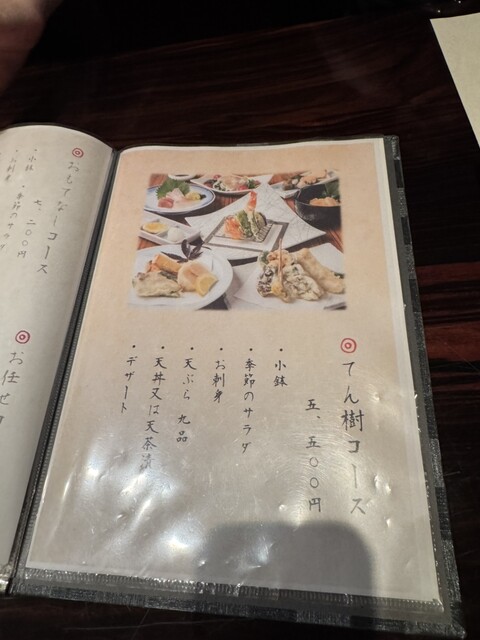 ◎てん樹コース
五、五〇〇円
・小鉢
・季節のサラダ
・お刺身
・天ぷら 九品
・天丼又は天茶漬
・デザート
◎おもてなしコース
七、二〇〇円
・小鉢
・季節のサラダ
・お刺身
◎お任せコ